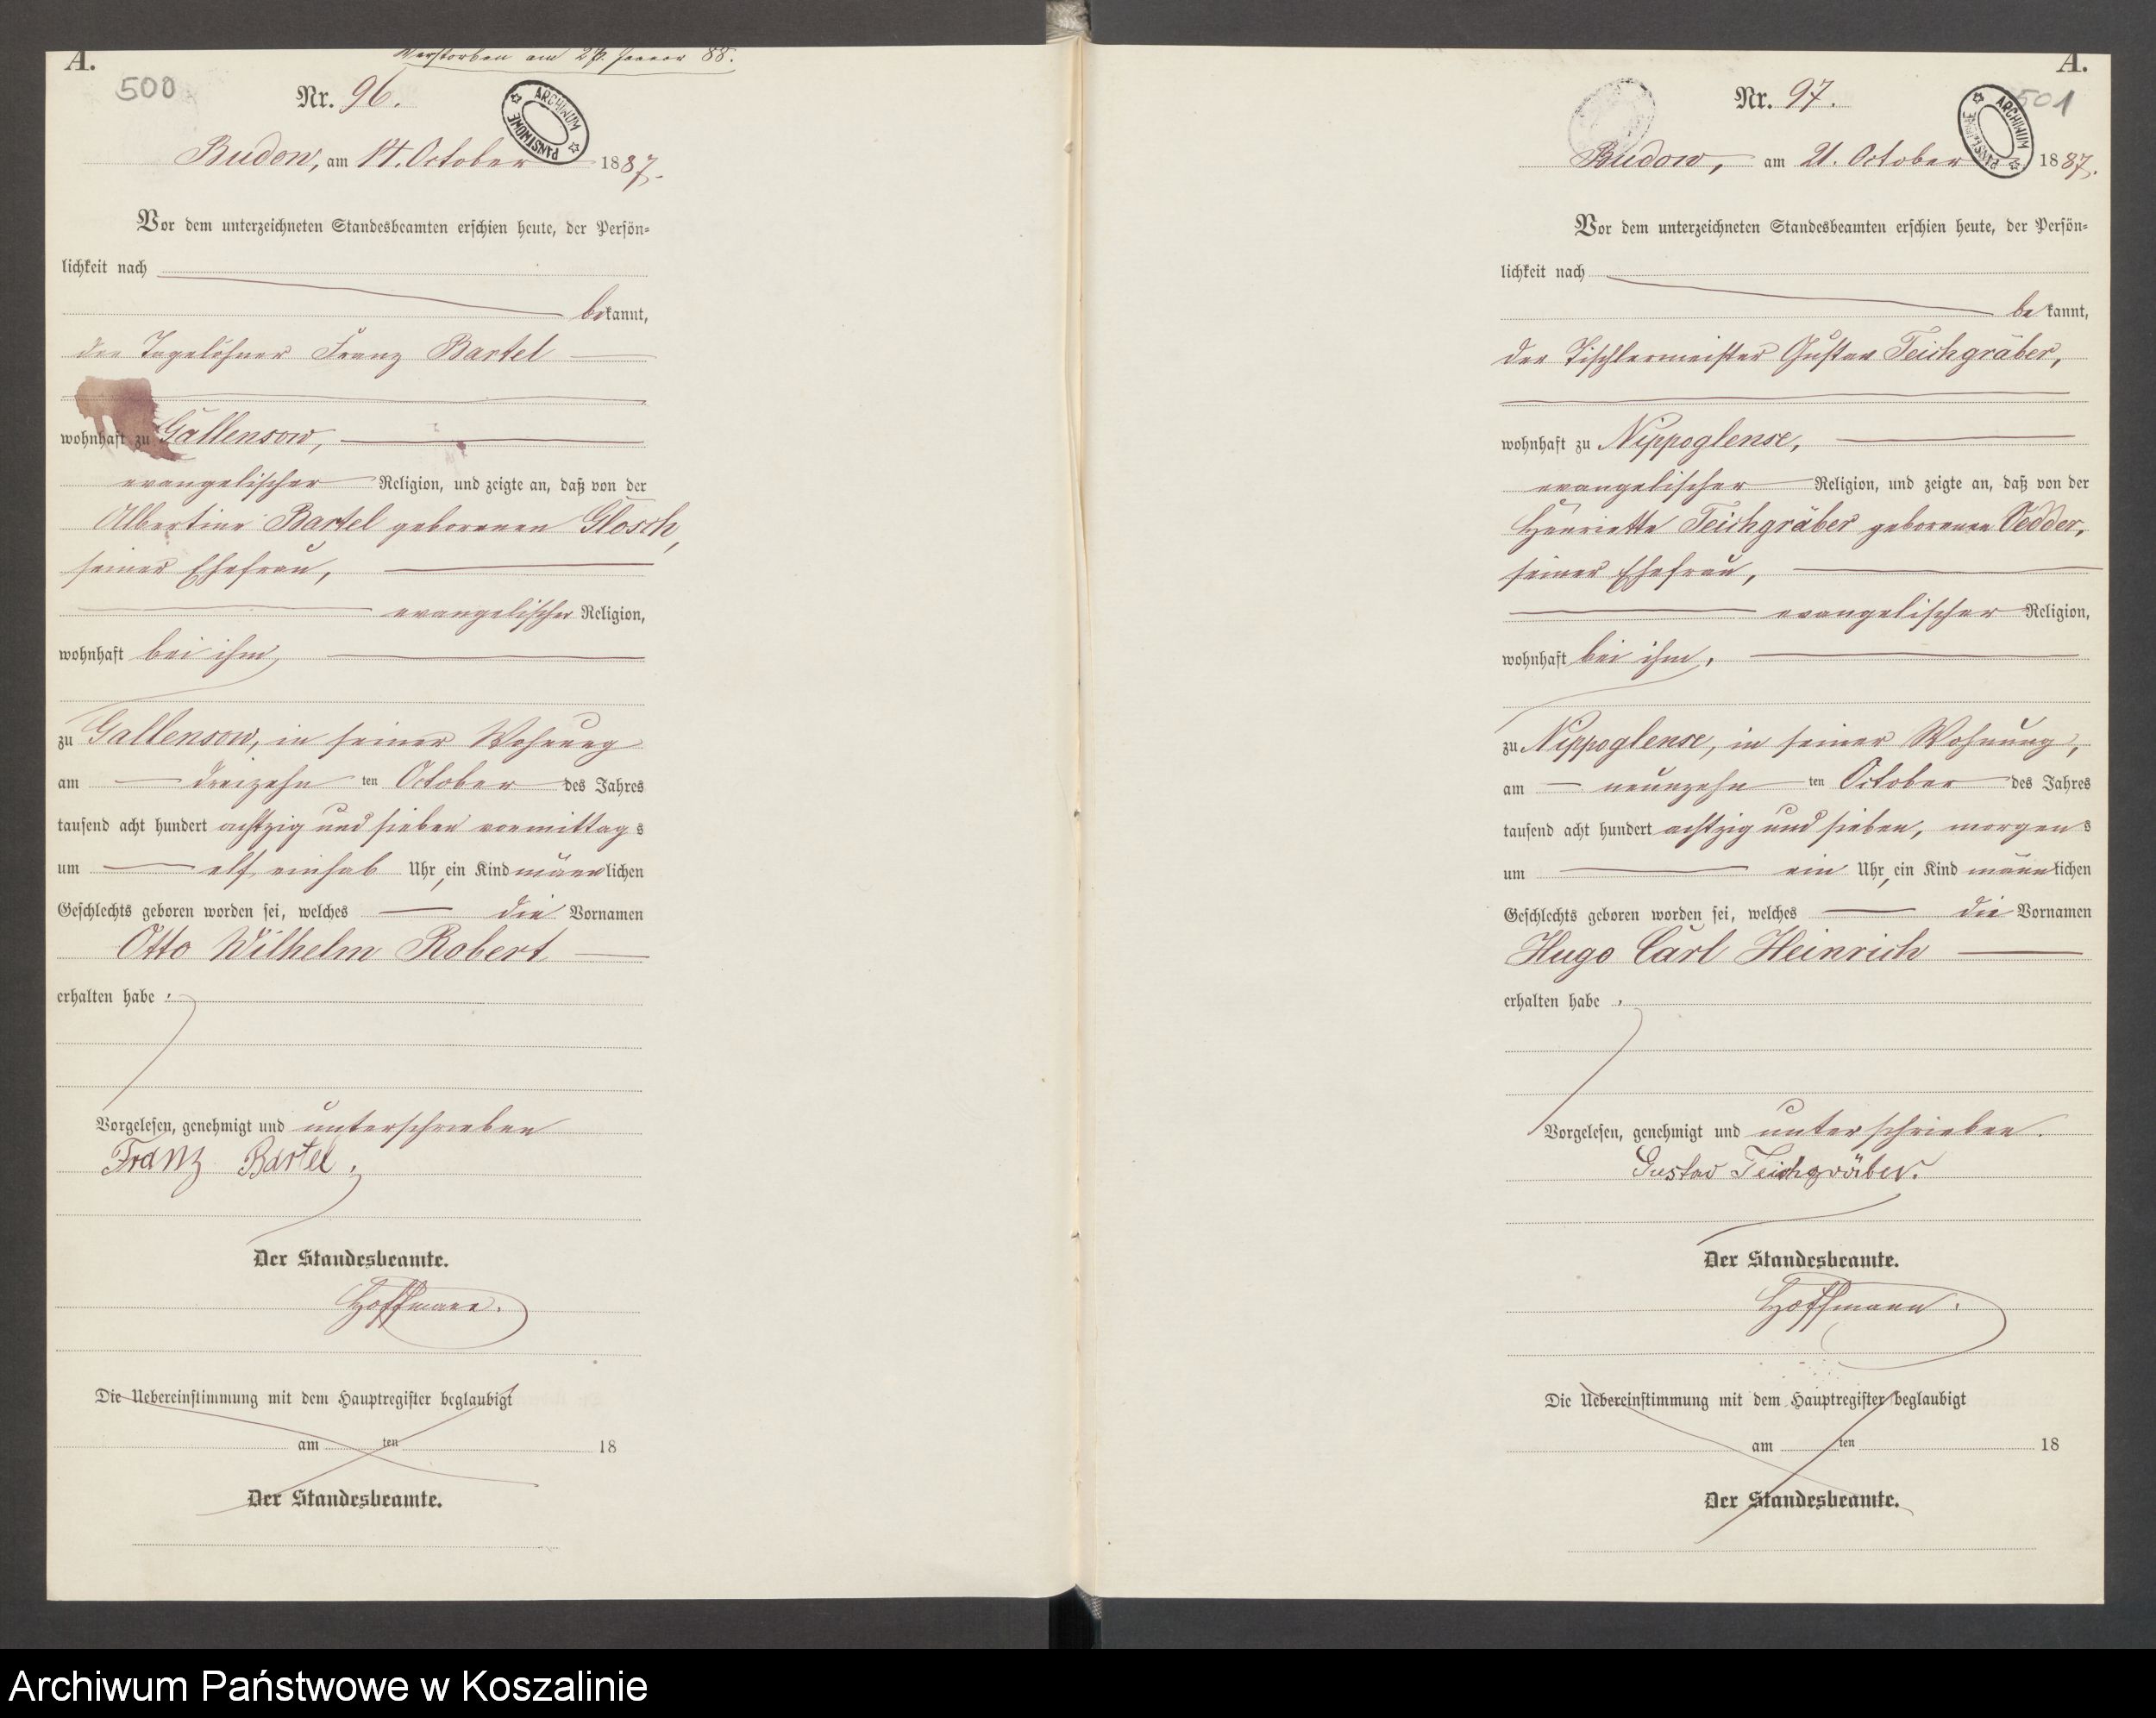 A.
Verstorben am 28. Januar 88.
500
Nr. 96.
ARCHIWUM PAŃSTWOWE
Budow, am 14. October 1887.
Vor dem unterzeichneten Standesbeamten erschien heute, der Persön-
lichkeit nach
bekannt,
der Tagelöhner Franz Bartel
wohnhaft zu Gallensow,
evangelischer Religion, und zeigte an, daß von der
Albertine Bartel geborenen Glosch,
seiner Ehefrau,
evangelischer Religion,
wohnhaft bei ihm,
zu Gallensow, in seiner Wohnung
am dreizehnten October des Jahres
tausend acht hundert achtzig und sieben vormittags
um elf einhalb Uhr, ein Kind männlichen
Geschlechts geboren worden sei, welches die Vornamen
Otto Wilhelm Robert
erhalten habe.
Vorgelesen, genehmigt und unterschrieben
Franz Bartel.
Der Standesbeamte.
Hoffmann.
Die Uebereinstimmung mit dem Hauptregister beglaubigt
am ten 18
Der Standesbeamte.
A.
501
Nr. 97.
ARCHIWUM PAŃSTWOWE
Budow, am 21. October 1887.
Vor dem unterzeichneten Standesbeamten erschien heute, der Persön-
lichkeit nach
bekannt,
der Tischlermeister Gustav Teichgräber,
wohnhaft zu Nippoglense,
evangelischer Religion, und zeigte an, daß von der
Henriette Teichgräber geborenen Vedder,
seiner Ehefrau,
evangelischer Religion,
wohnhaft bei ihm,
zu Nippoglense, in seiner Wohnung,
am neunzehnten October des Jahres
tausend acht hundert achtzig und sieben, morgens
um ein Uhr, ein Kind männlichen
Geschlechts geboren worden sei, welches die Vornamen
Hugo Carl Heinrich
erhalten habe.
Vorgelesen, genehmigt und unterschrieben.
Gustav Teichgräber.
Der Standesbeamte.
Hoffmann.
Die Uebereinstimmung mit dem Hauptregister beglaubigt
am ten 18
Der Standesbeamte.
Archiwum Państwowe w Koszalinie